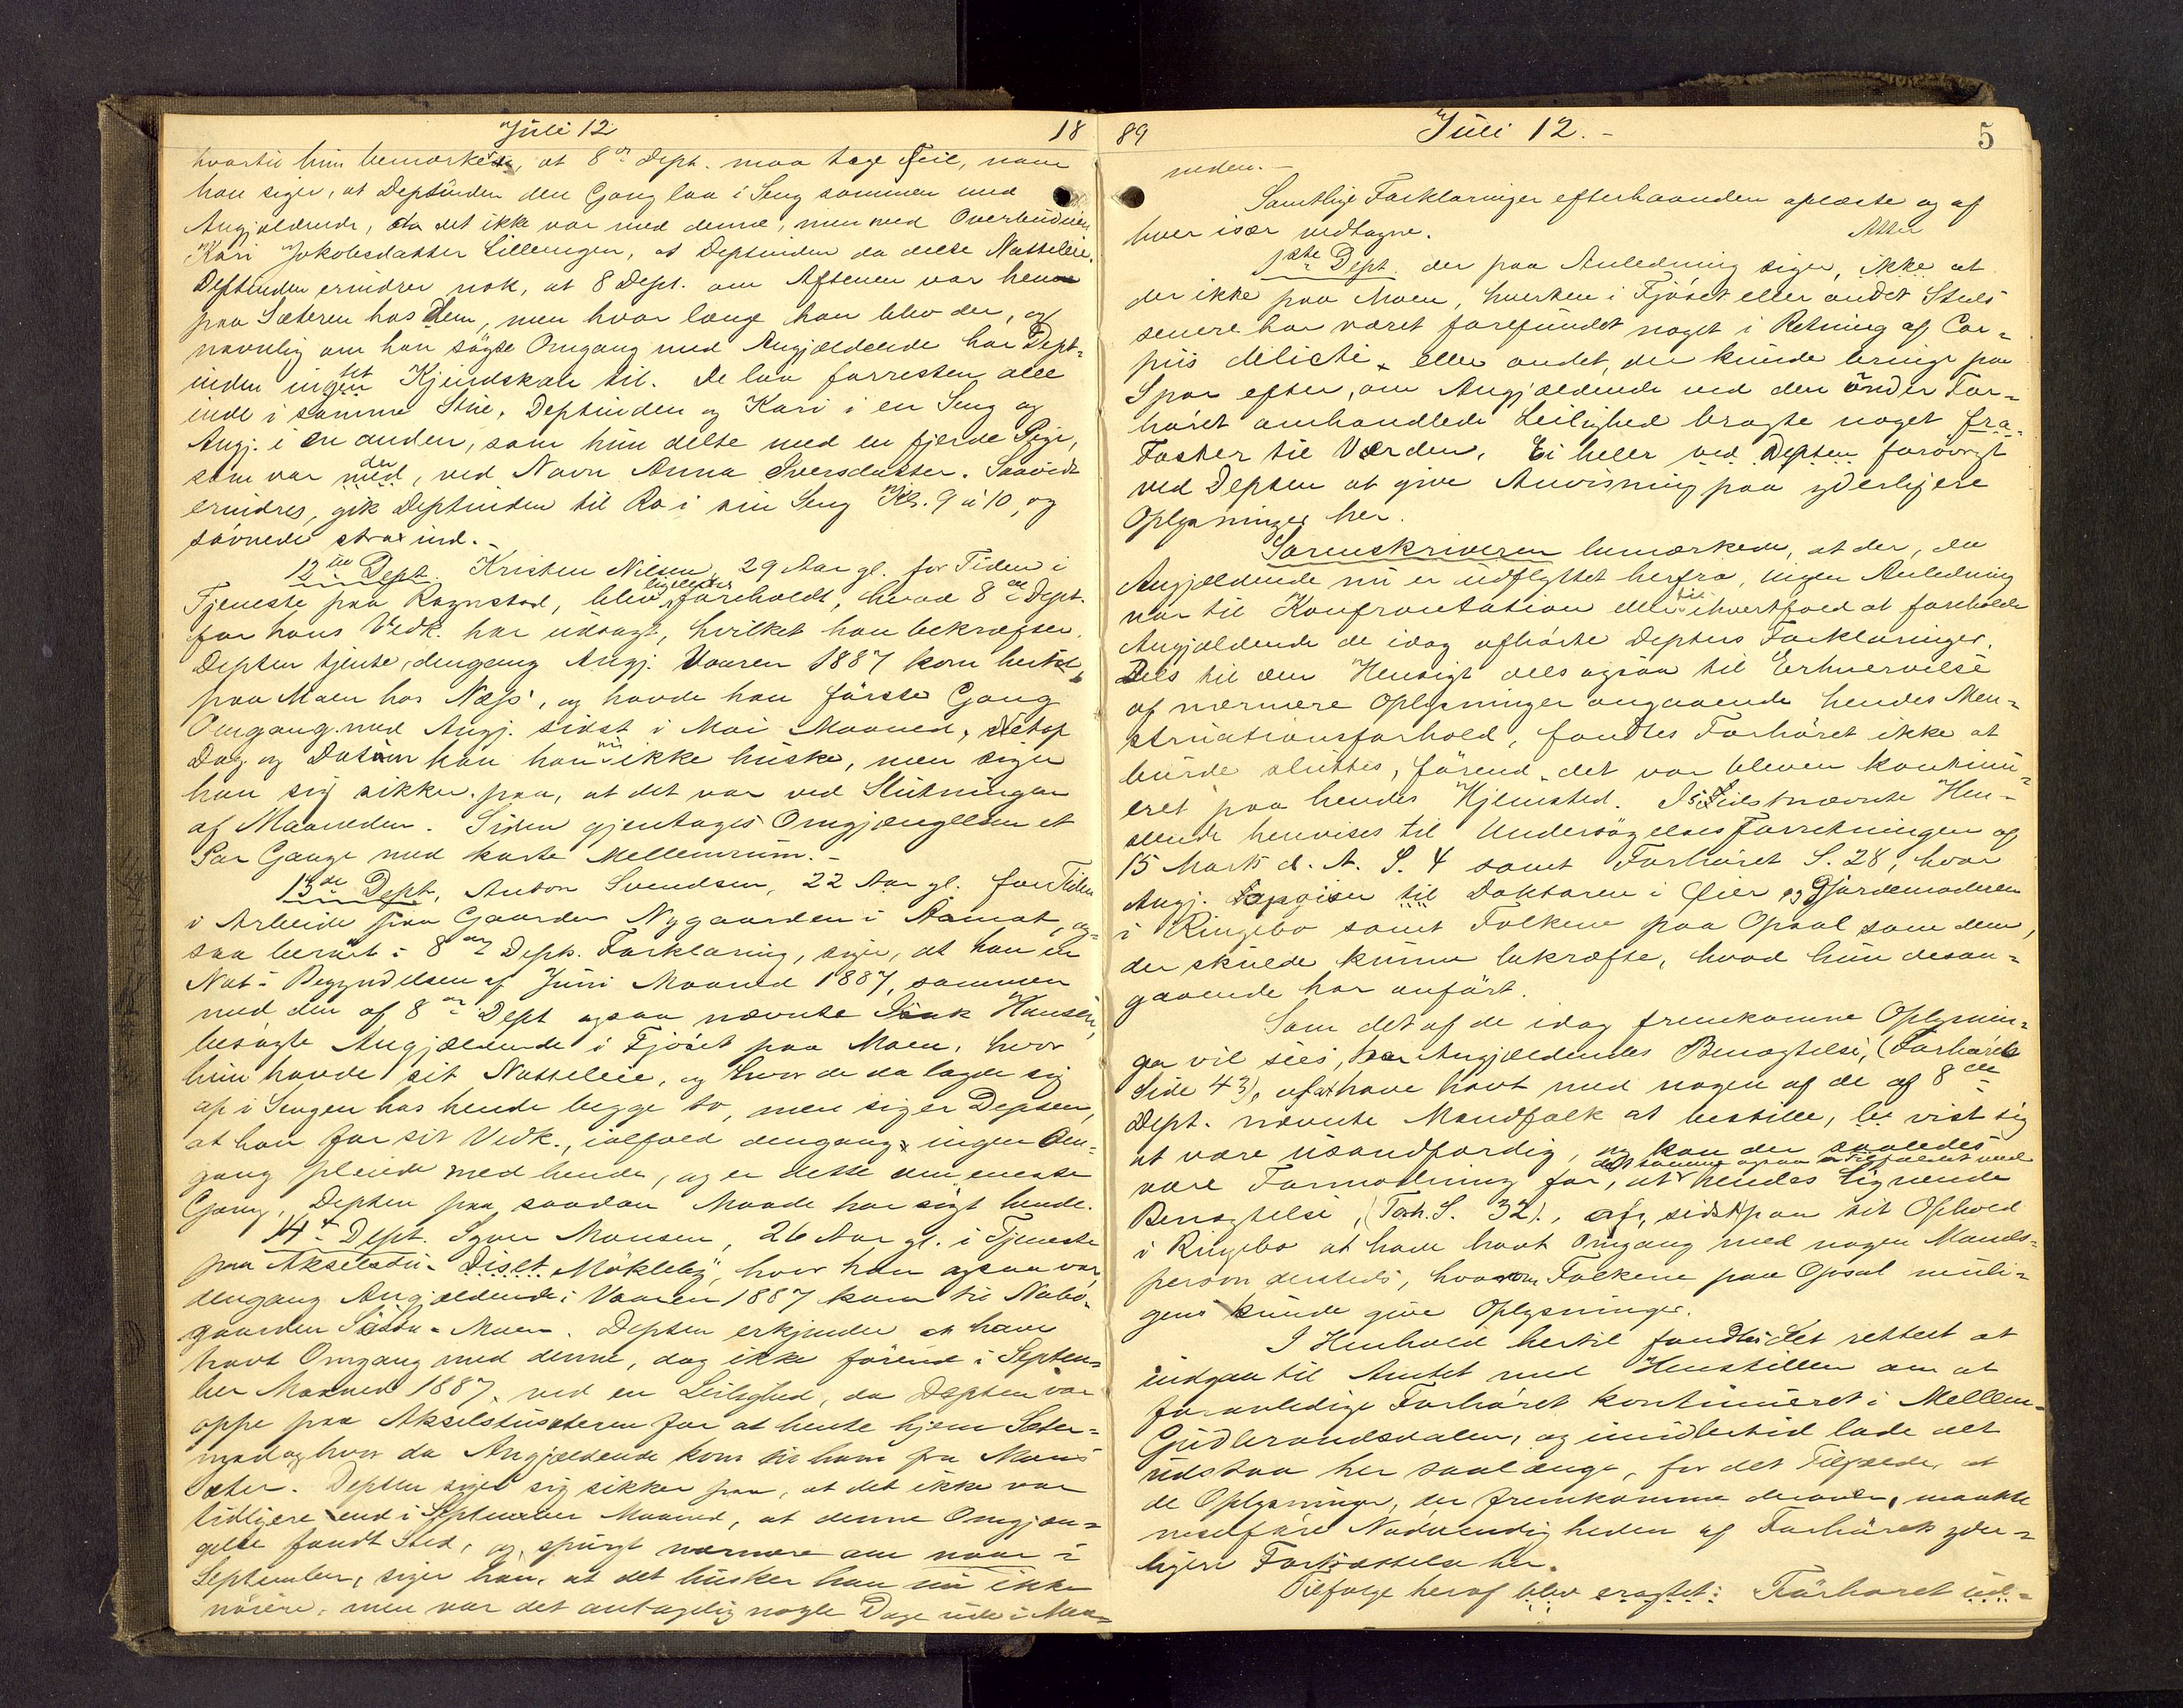 Juli 12 18
hvortil hun bemærkede, at 8de Dept. maa tage Feil, naar
han siger, at Deptinden den Gang laa i Seng sammen med
Angjældende, da det ikke var med denne, men med Overbudeien
Kari Jakobsdatter Lilleengen, at Deptinden da delte Natteleie.
Deptinden erindrer nok, at 8 Dept. om Aftenen var henne
paa Sæteren hos dem, men hvor længe han blev der, og
navnlig om han søgte Omgang med Angjældende har Dept-
inden intet Kjendskab til. De laa forresten alle
inde i samme Stue, Deptinden og Kari i en Seng og
Angj. i en anden, som hun delte med en fjerde Pige,
som var der med, ved Navn Anna Iversdatter. Saavidt
erindres, gik Deptinden til Ro i sin Seng Kl. 9 à 10, og
sovnede strax ind.-
12te Dept. Kristen Nilsen, 29 Aar gl. for Tiden i
Tjeneste paa Rognstad, blev ligeledes foreholdt, hvad 8de Dept.
for hans Vedk. har udsagt, hvilket han bekræfter.
Depten tjente, dengang Angj. Vaaren 1887 kom hertil,
paa Moen hos Næss, og havde han første Gang
Omgang med Angj. sidst i Mai Maaned, Netop
Dag og Datum kan han nu ikke huske, men siger
han sig sikker paa, at det var ved Slutningen
af Maaneden. Siden gjentoges Omgjængelsen et
Par Gange med korte Mellemrum.-
13de Dept. Anton Svendsen, 22 Aar gl. for Tiden
i Arbeide paa Gaarden Nygaarden i Aamot, og-
saa berørt i 8de Depts. Forklaring, siger, at han en
Nat i Begyndelsen af Juni Maaned 1887, sammen
med den af 8de Dept ogsaa nævnte Isak Hansen,
besøgte Angjældende i Fjøset paa Moen, hvor
hun havde sit Natteleie, og hvor de da lagde sig
op i Sengen hos hende begge to, men siger Depten,
at han for sit Vedk., ialfald dengang, ingen Om-
gang pleiede med hende, og er dette den eneste
Gang, Depten paa saadan Maade har søgt hende.
14de Dept. Syver Monsen, 26 Aar gl. i Tjeneste
paa Akselstu- Diset Møkleby, hvor han ogsaa var,
dengang Angjældende i Vaaren 1887 kom til Nabo-
gaarden - Moen. Depten erkjender at have
havt Omgang med denne, dog ikke førend i Septem-
ber Maaned 1887, ved en Leilighed, da Depten var
oppe paa Akselstusæteren for at hente hjem Sæter-
mad og hvor da Angjældende kom til ham fra Moens
Sæter. Depten siger sig sikker paa, at det ikke var
tidligere end i September Maaned, at denne Omgjæn-
gelse fandt Sted, og, spurgt nærmere om naar i
September, siger han, at det husker han nu ikke
nøiere, men var det antagelig nogle Dage ude i Maa-
89 Juli 12.- 5
neden.-
Samtlige Forklaringer efterhaanden oplæste og af
hver især vedtagne. Atter
1ste Dept. der paa Anledning siger, ikke at
der ikke paa Moen, hverken i Fjøset eller andet Steds
senere har været forefundet noget i Retning af Cor-
pus delicti eller andet, der kunde bringe paa
Spor efter, om Angjældende ved den under For-
høret omhandlede Leilighed bragte noget fra-
Foster til Verden. Ei heller ved Depten forøvrigt
ved Depten at give Anvisning paa yderligere
Oplysninger her.
Sorenskriveren bemærkede, at der, da
Angjældende nu er udflyttet herfra, ingen Anledning
var til Konfrontation eller til ihvertfald at foreholde
Angjældende de idag afhørte Depters Forklaringer.
Dels til den Hensigt dels ogsaa til Erhvervelse
af nærmere Oplysninger angaaende hendes Men-
struationsforhold, fandtes Forhøret ikke at
burde sluttes, førend det var bleven kontinu-
eret paa hendes Hjemsted. I Sidstnævnte Hen-
seende henvises til Undersøgelsesforretningen af
15 Marts d. A. S. 4 samt Forhøret S. 28, hvor
Angj. til Doktoren i Øier og Gjordemoderen
i Ringebo samt Folkene paa Opsal som dem,
der skulde kunne bekræfte, hvad hun desan-
gaaende har anført.
Som det af de idag fremkomne Oplysnin-
ger vil sees, har Angjældendes Benægtelse, (Forhørets
Side 43), af at have havt med nogen af de af 8de
Dept. nævnte Mandfolk at bestille, vist sig
at være usandfærdig, og kan der saaledes
være Formodning for, at det samme ogsaa er Tilfældet med hendes lignende
Benægtelse, (Forh. S. 32)., af, sidst paa sit Ophold
i Ringebo at have havt Omgang med nogen Mands-
person dersteds, hvorom Folkene paa Opsal muli-
gens kunde give Oplysninger.
I Henhold hertil fandtes det rettest at
indgaa til Amtet med Henstillen om at
foranledige Forhøret kontinueret i Mellem-
Gudbrandsdalen, og imidlertid lade det
udstaa her saalænge, for det Tilfælde, at
de Oplysninger, der fremkomme derover, maatte
medføre Nødvendigheden af Forhørets yder-
ligere Fortsættelse her.
Tilfølge heraf blev eragtet: Forhøret ud-